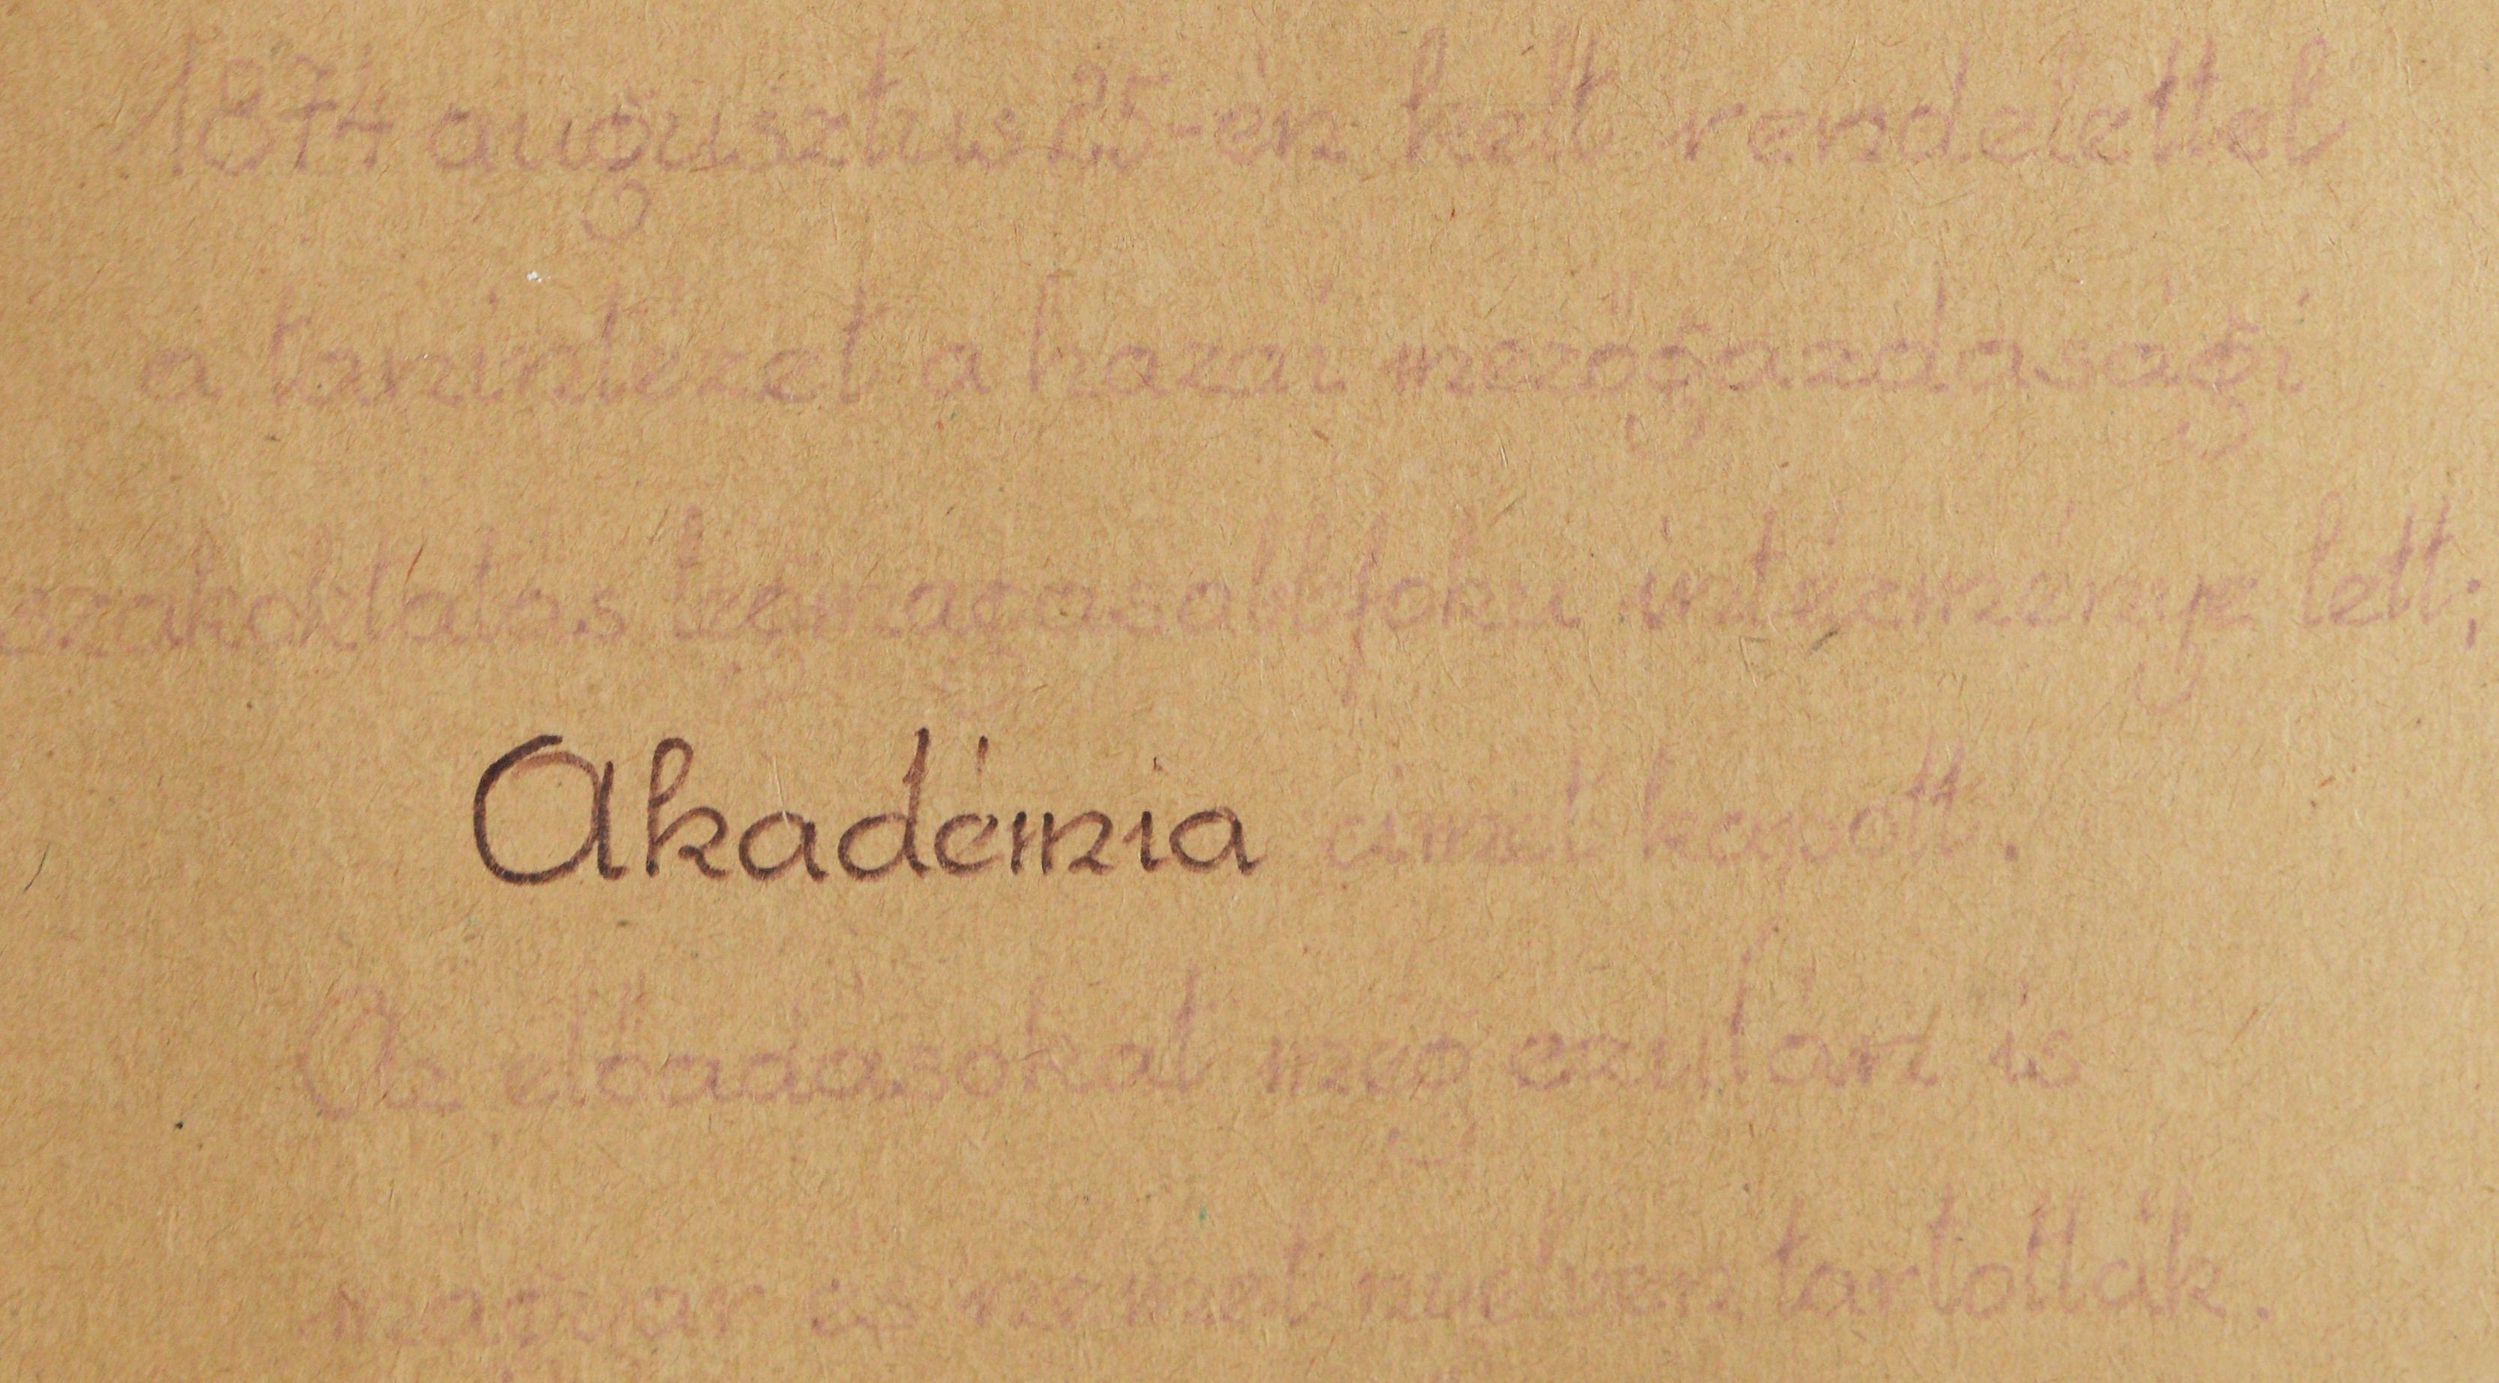 1874 augusztus 25-én kelt rendelettel
a tanintézet a hazai mezőgazdasági
szakoktatás legmagasabbfokú intézménye lett;
Akadémia címet kapott.
Az előadásokat még ezután is
magyar és német nyelven tartották.